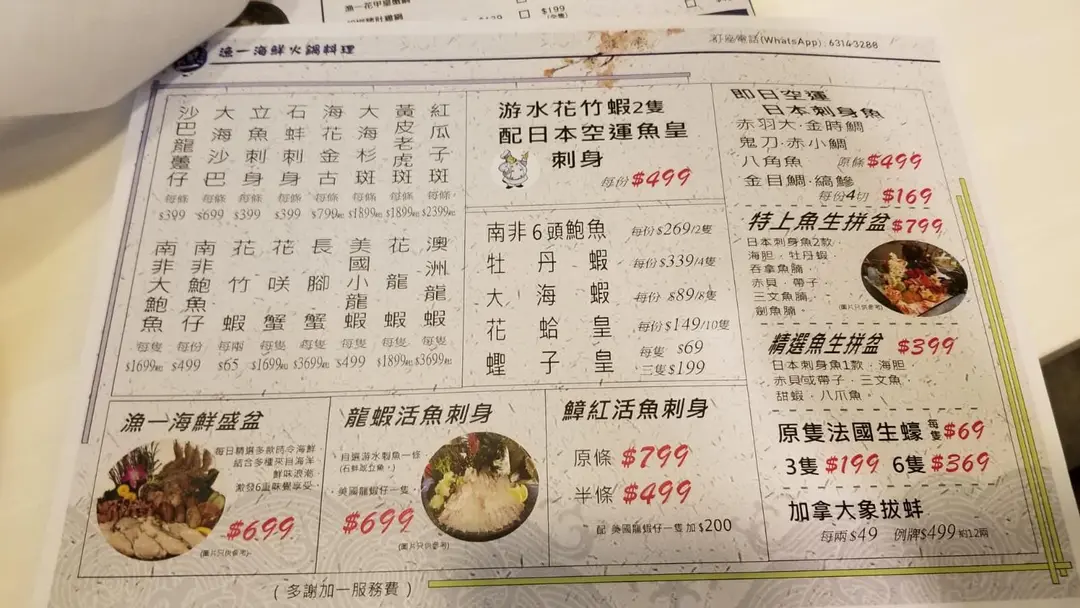 $199
漁一海鮮火鍋料理
(WhatsApp) : 63143288
沙巴龍躉仔 每條 $399
大海沙巴 每條 $699
立魚刺身 每條 $399
石蚌刺身 每條 $399
海花金古 每條 $790起
大海杉斑 每條 $1899起
黃皮老虎斑 每條 $1899起
紅瓜子斑 每條 $2399起
南非大鮑魚 每隻 $1699起
南非鮑魚仔 每份 $499
花竹蝦 每兩 $65
花咲蟹 每隻 $1699起
長腳蟹 每隻 $3699起
美國小龍蝦 每隻 $499
花龍蝦 每隻 $1899起
澳洲龍蝦 每隻 $3699起
游水花竹蝦2隻
配日本空運魚皇
刺身
每份 $499
南非6頭鮑魚 每份 $269/2隻
牡丹蝦 每份 $339/4隻
大海蝦 每份 $89/8隻
花蛤皇 每份 $149/10隻
蟶子皇 每隻 $69
三隻 $199
即日空運
日本刺身魚
赤羽大·金時鯛
鬼刀·赤小鯛
八角魚 原條 $499
金目鯛·縞鰺
每份4切 $169
特上魚生拼盆 $799
日本刺身魚2款·
海胆·牡丹蝦·
吞拿魚腩·
赤貝·帶子·
三文魚腩·
劍魚腩·
(圖片只供參考)
精選魚生拼盆 $399
日本刺身魚1款·海胆
赤貝或帶子·三文魚·
甜蝦·八爪魚·
原隻法國生蠔 每隻 $69
3隻 $199 6隻 $369
加拿大象拔蚌
每兩 $49 例牌 $499 約12兩
漁一海鮮盛盆
每日精選多款時令海鮮
結合多種來自海洋
鮮味浪潮·
激發6重味覺享受·
$699
(圖片只供參考)
龍蝦活魚刺身
·自選游水刺魚一條
(石蚌或立魚·)
·美國龍蝦仔一隻·
$699
(圖片只供參考)
鱆紅活魚刺身
原條 $799
半條 $499
配 美國龍蝦仔一隻 加 $200
( 多謝加一服務費 )